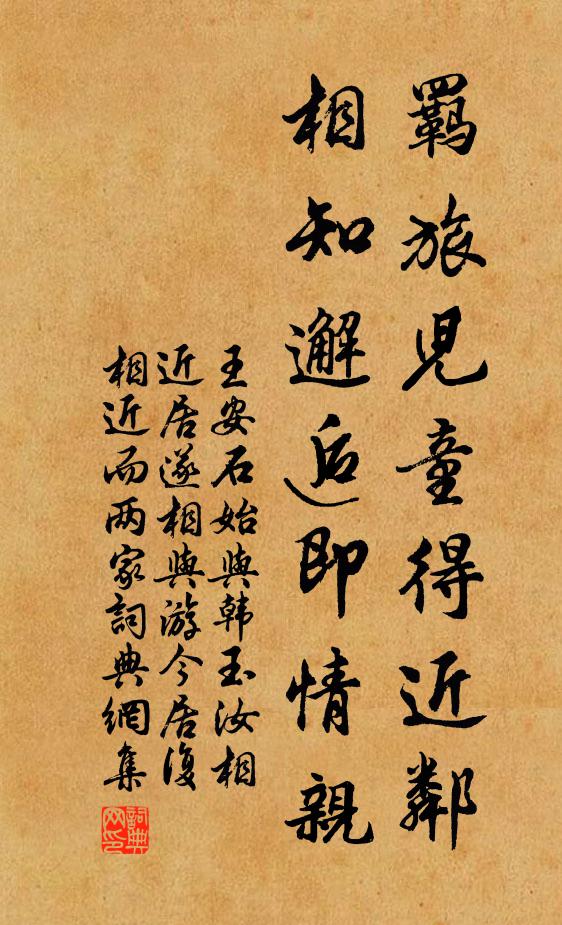 羈旅兒童得近鄰
相知邂逅即情親
王安石始與韩玉汝相
近居遂相與游今居復
相近而两家詞典網集
詞典
网印